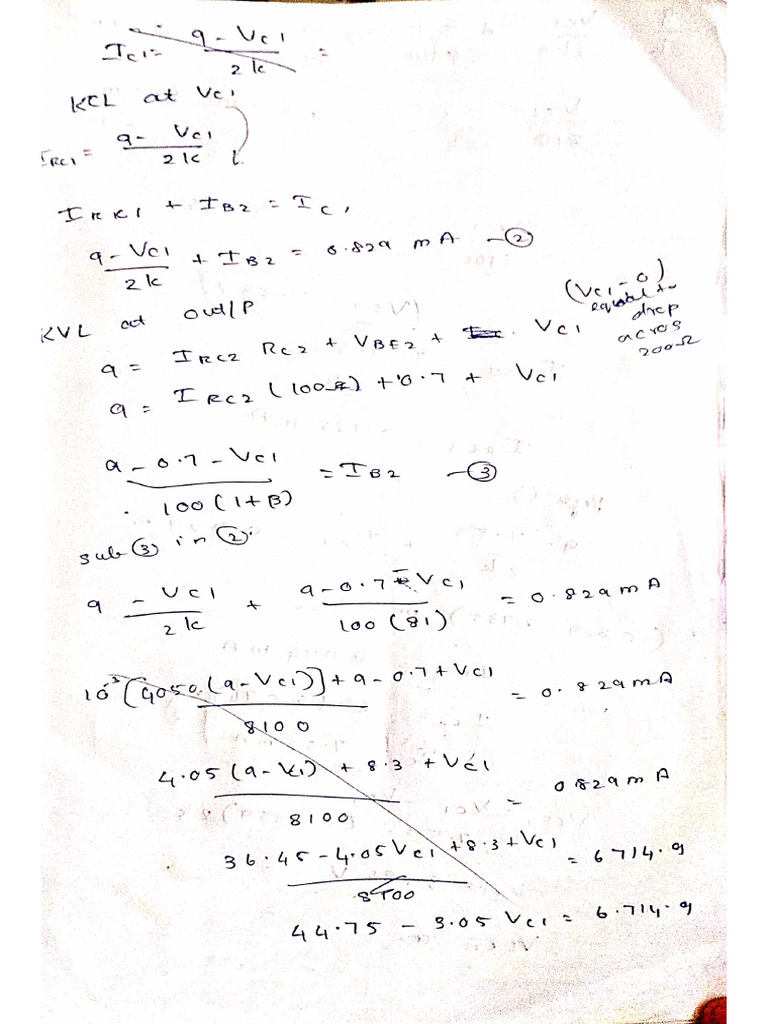 I_C1 = (9 - V_C1) / 2k =
KCL at V_C1
I_RC1 = (9 - V_C1) / 2k
I_RK1 + I_B2 = I_C1
(9 - V_C1) / 2k + I_B2 = 0.829 mA - ②
KVL at out/P
(V_C1 - 0)
equal to
drop
acros
200Ω
9 = I_RC2 R_C2 + V_BE2 + V_C1
9 = I_RC2 (100Ω) + 0.7 + V_C1
(9 - 0.7 - V_C1) / 100(1+β) = I_B2 - ③
sub ③ in ②.
(9 - V_C1) / 2k + (9 - 0.7 - V_C1) / 100(81) = 0.829 mA
10^-3 [4050 (9 - V_C1)] + 9 - 0.7 + V_C1 / 8100 = 0.829 mA
4.05 (9 - V_C1) + 8.3 + V_C1 / 8100 = 0.829 mA
36.45 - 4.05 V_C1 + 8.3 + V_C1 / 8100 = 6714.9
44.75 - 3.05 V_C1 = 6.714.9